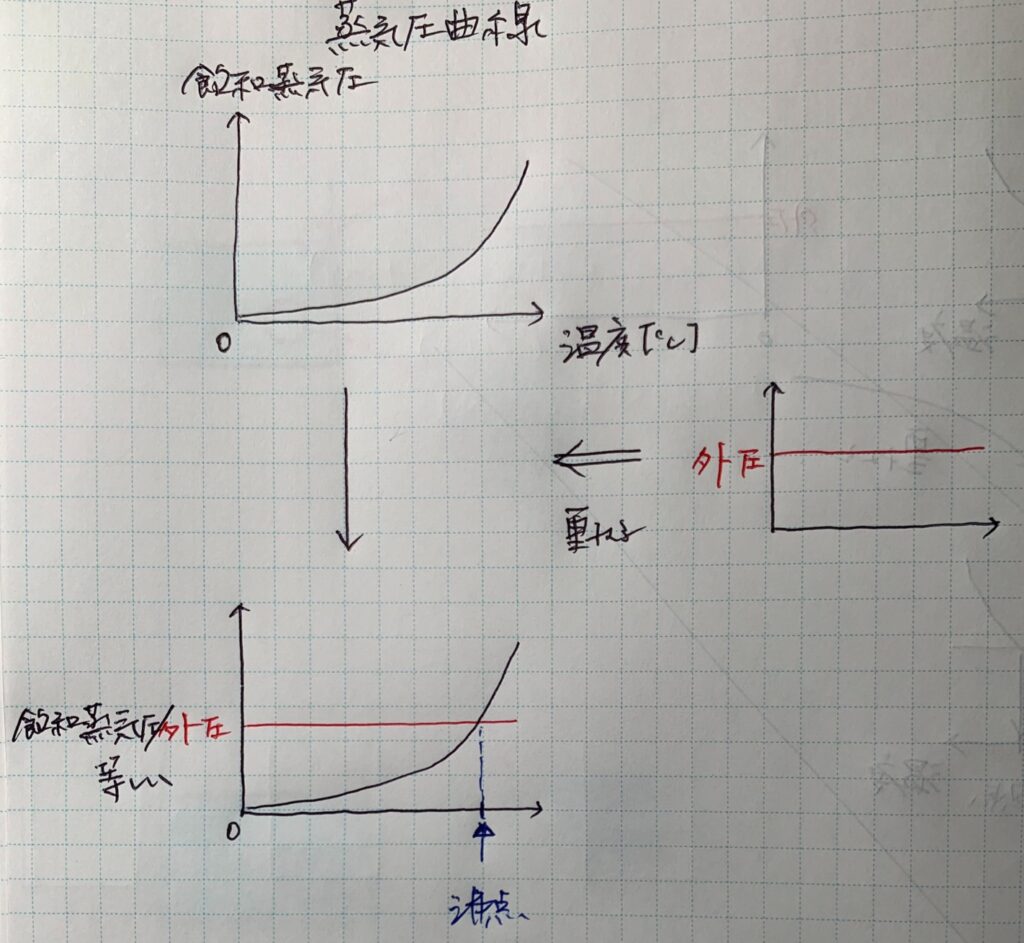 蒸気圧曲線
飽和蒸気圧
0
温度[℃]
外圧
重ねる
飽和蒸気圧/外圧
等しい
0
沸点